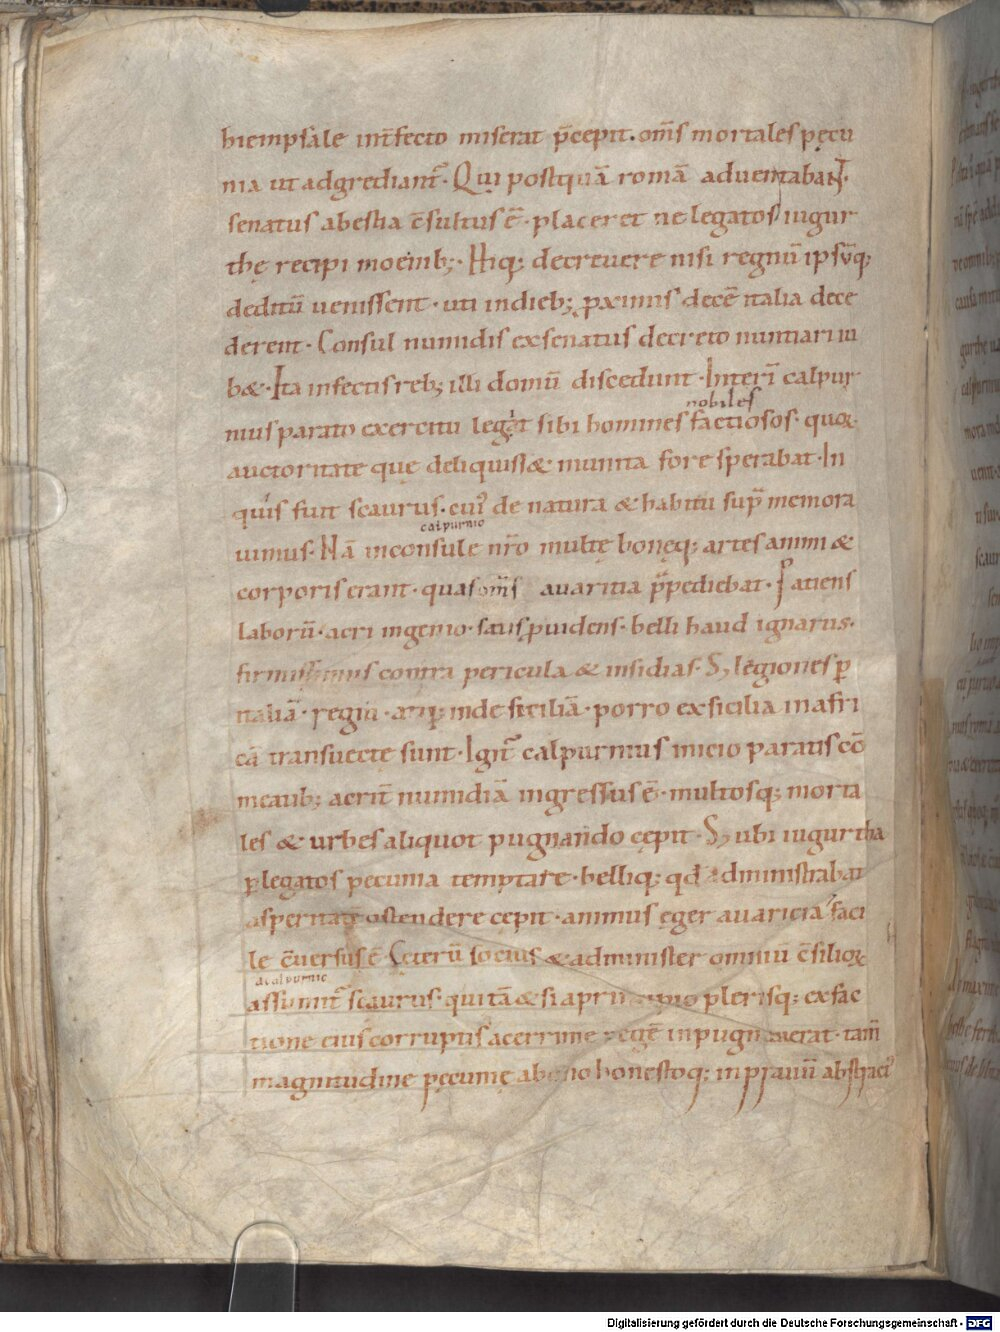 hiempsale int̄fecto miserat p̄cepit. om̄s mortales pęcu
nia ut adgrediant̄. Qui postquā romā adventabant.
senatus abestia c̄sultus ē. placeret ne legatos iugur
thę recipi moenib;. Hiq; decrevere nisi regnū ipsūq;
deditū venissent. uti in dieb; pximis decē italia dece
derent. Consul numidis ex senatus decreto nuntiari iu
b&. Ita infectis reb; illi domū discedunt. Interī calpur
nobiles
nius parato exercitu legat sibi homines factiosos. quoꝝ
auctoritate que deliquiss& munita fore sperabat. In
quis fuit scaurus. cui' de natura & habitu sup̄ memora
calpurnio
uimus. Nā in consule nr̄o multę bonęq; artes animi &
corporis erant. quas om̄s avaritia p̄pediebat. Patiens
laborū. acri ingenio. satis puidens. belli haud ignarus.
firmissimus contra pericula & insidias. S; legiones ꝑ
italiā. regiū. atq; inde siciliā. porro ex sicilia in afri
cā transvectę sunt. Igit̄ calpurnius inicio paratis cō
meatib; acrit̄ numidiā ingressus ē. multosq; morta
les & urbes aliquot pugnando cępit. S; ubi iugurtha
ꝑ legatos pecunia temptare. belliq; qd̄ administrabat
asperitatē ostendere cępit. animus ęger avaricia faci
le c̄versus ē. Ceterū socius & administer omniū c̄silioꝝ
a calpurnio
assumit̄ scaurus. qui tā& si a principio plerisq; ex fac
tione eius corruptis acerrime regē inpugnaverat. tam̄
magnitudine pęcunię a bono honestoq; in pravū abstract'